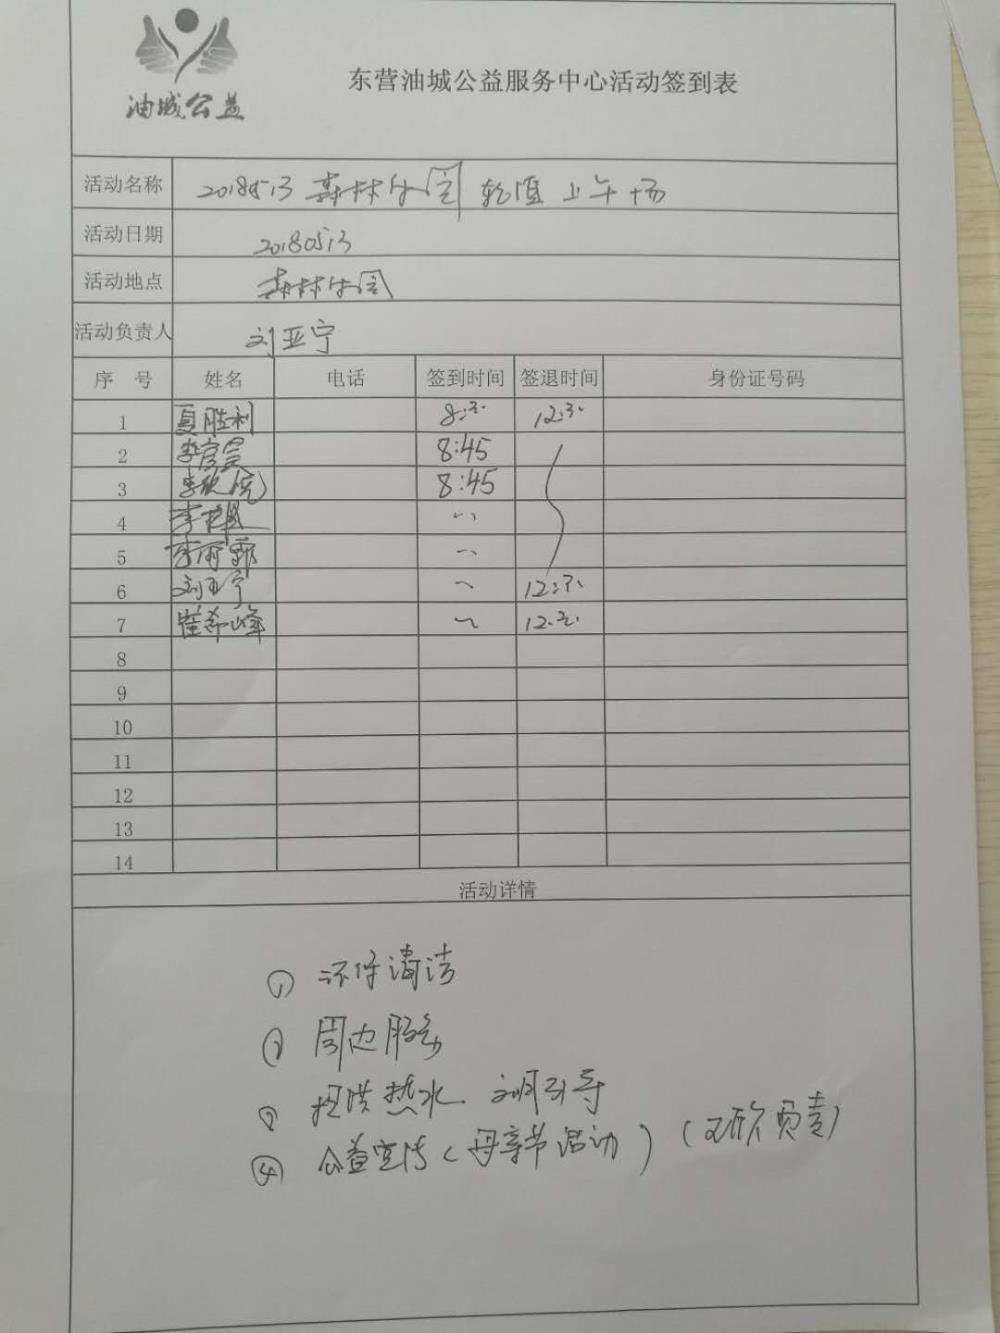 油城公益
东营油城公益服务中心活动签到表
活动名称 20180513 森林公园 轮值 上午场
活动日期 20180513
活动地点 森林公园
活动负责人 刘亚宁
序 号 姓名 电话 签到时间 签退时间 身份证号码
1 夏胜利 8:30 12:30
2 8:45
3 8:45
4 〃
5 李雨霏 〃
6 刘亚宁 〃 12:30
7 崔希峰 〃 12:30
8
9
10
11
12
13
14
活动详情
① 环保清洁
② 周边服务
③ 提供热水 文明引导
④ 公益宣传(母亲节活动) 负责)